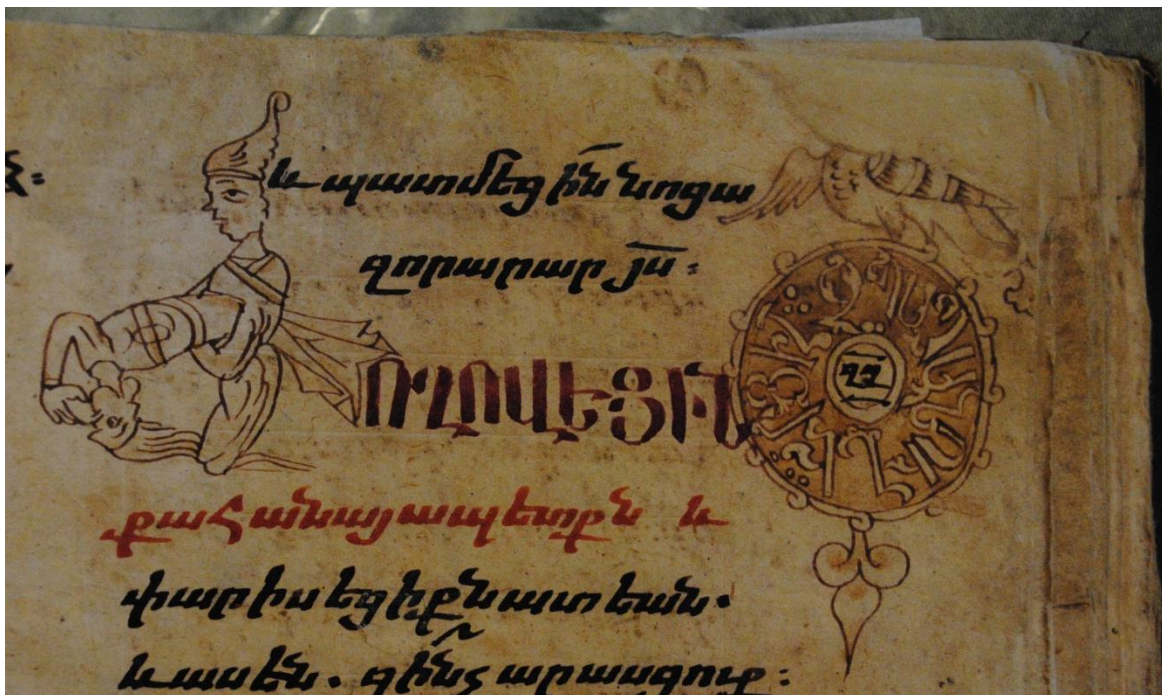 և պատմեցին նոցա
զոր արար յս։
ԺՈՂՈՎԵՑԻՆ
քահանայապետքն և
փարիսեցիքն ատեան.
և ասեն. զինչ արասցուք։